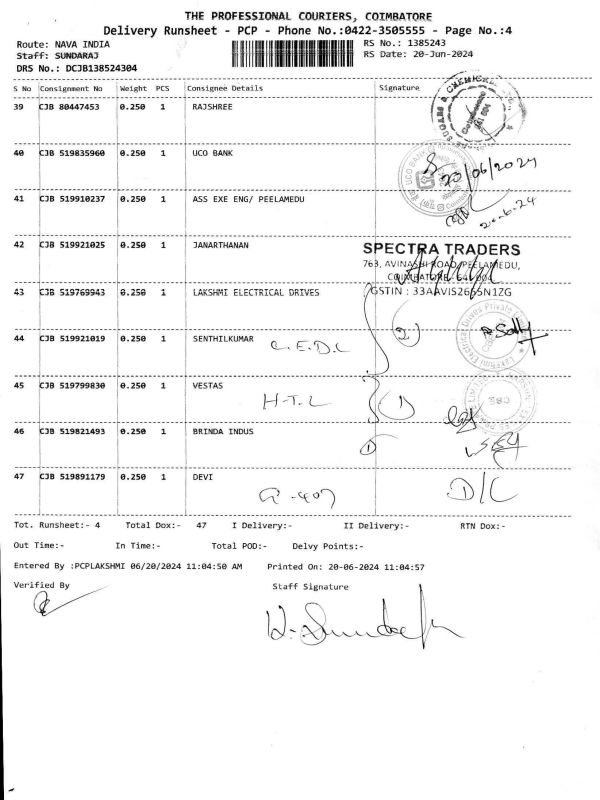 THE PROFESSIONAL COURIERS, COIMBATORE
Delivery Runsheet - PCP - Phone No.:0422-3505555 - Page No.:4
Route: NAVA INDIA RS No.: 1385243
Staff: SUNDARAJ RS Date: 20-Jun-2024
DRS No.: DCJB138524304
S No Consignment No Weight PCS Consignee Details Signature
39 CJB 80447453 0.250 1 RAJSHREE
40 CJB 519835960 0.250 1 UCO BANK
UCO BANK
20/06/2024
41 CJB 519910237 0.250 1 ASS EXE ENG/ PEELAMEDU
20.6.24
42 CJB 519921025 0.250 1 JANARTHANAN
SPECTRA TRADERS
763, AVINASHI ROAD, PEELAMEDU,
COIMBATORE - 641 004
GSTIN : 33AAVIS2655N1ZG
43 CJB 519769943 0.250 1 LAKSHMI ELECTRICAL DRIVES
44 CJB 519921019 0.250 1 SENTHILKUMAR
L.E.D.L
2
45 CJB 519799830 0.250 1 VESTAS
H-T-L
1
CBE
46 CJB 519821493 0.250 1 BRINDA INDUS
1
47 CJB 519891179 0.250 1 DEVI
D/C
Tot. Runsheet:- 4 Total Dox:- 47 I Delivery:- II Delivery:- RTN Dox:-
Out Time:- In Time:- Total POD:- Delvy Points:-
Entered By :PCPLAKSHMI 06/20/2024 11:04:50 AM Printed On: 20-06-2024 11:04:57
Verified By Staff Signature